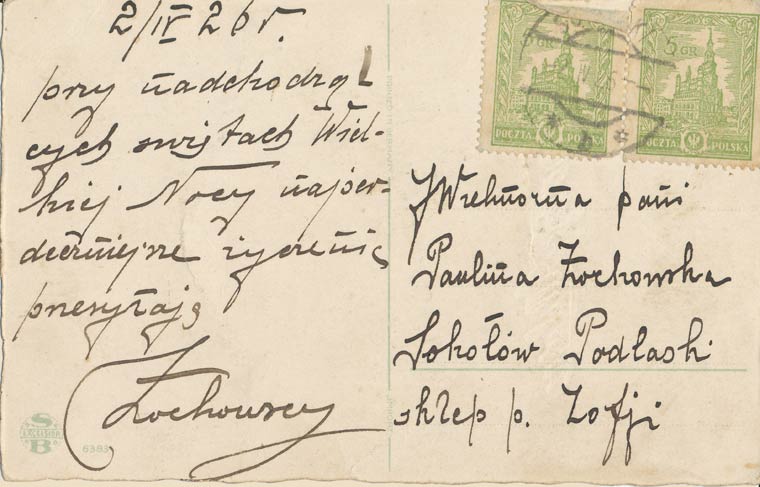 2/IV 26 r.
przy nadchodzą
cych świętach Wiel-
kiej Nocy najser-
deczniejsze życzenia
przesyłają
Żochowscy
5 GR
5 GR
POCZTA POLSKA
POCZTA POLSKA
JWielmożna pani
Paulina Żochowska
Sokołów Podlaski
sklep p. Zofji
S
EXCELSIOR
B
6383